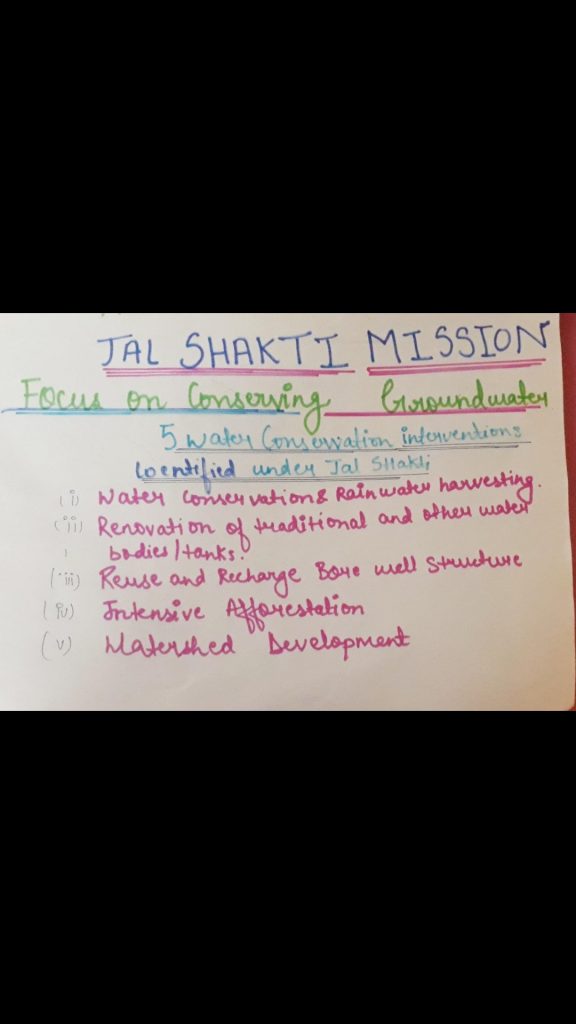 JAL SHAKTI MISSION
Focus on Conserving Groundwater
5 Water Conservation interventions
Identified under Jal Shakti
(i) Water Conservation & Rainwater harvesting.
(ii) Renovation of traditional and other water
bodies/tanks.
(iii) Reuse and Recharge Bore well Structure
(iv) Intensive Afforestation
(v) Watershed Development